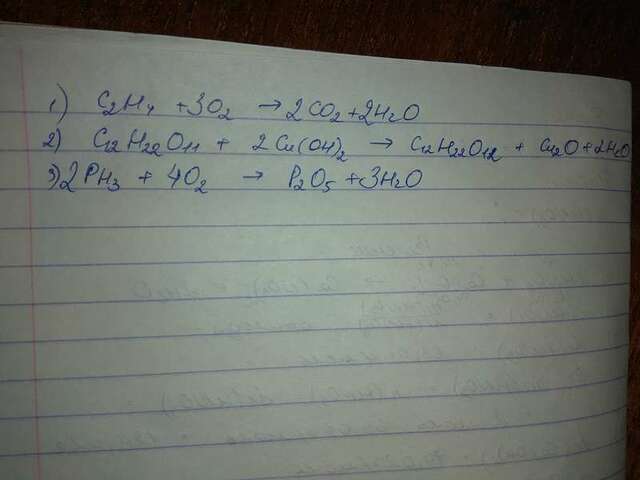 1) C₂H₄ + 3O₂ → 2CO₂ + 2H₂O
2) C₁₂H₂₂O₁₁ + 2Cu(OH)₂ → C₁₂H₂₂O₁₂ + Cu₂O + 2H₂O
3) 2PH₃ + 4O₂ → P₂O₅ + 3H₂O